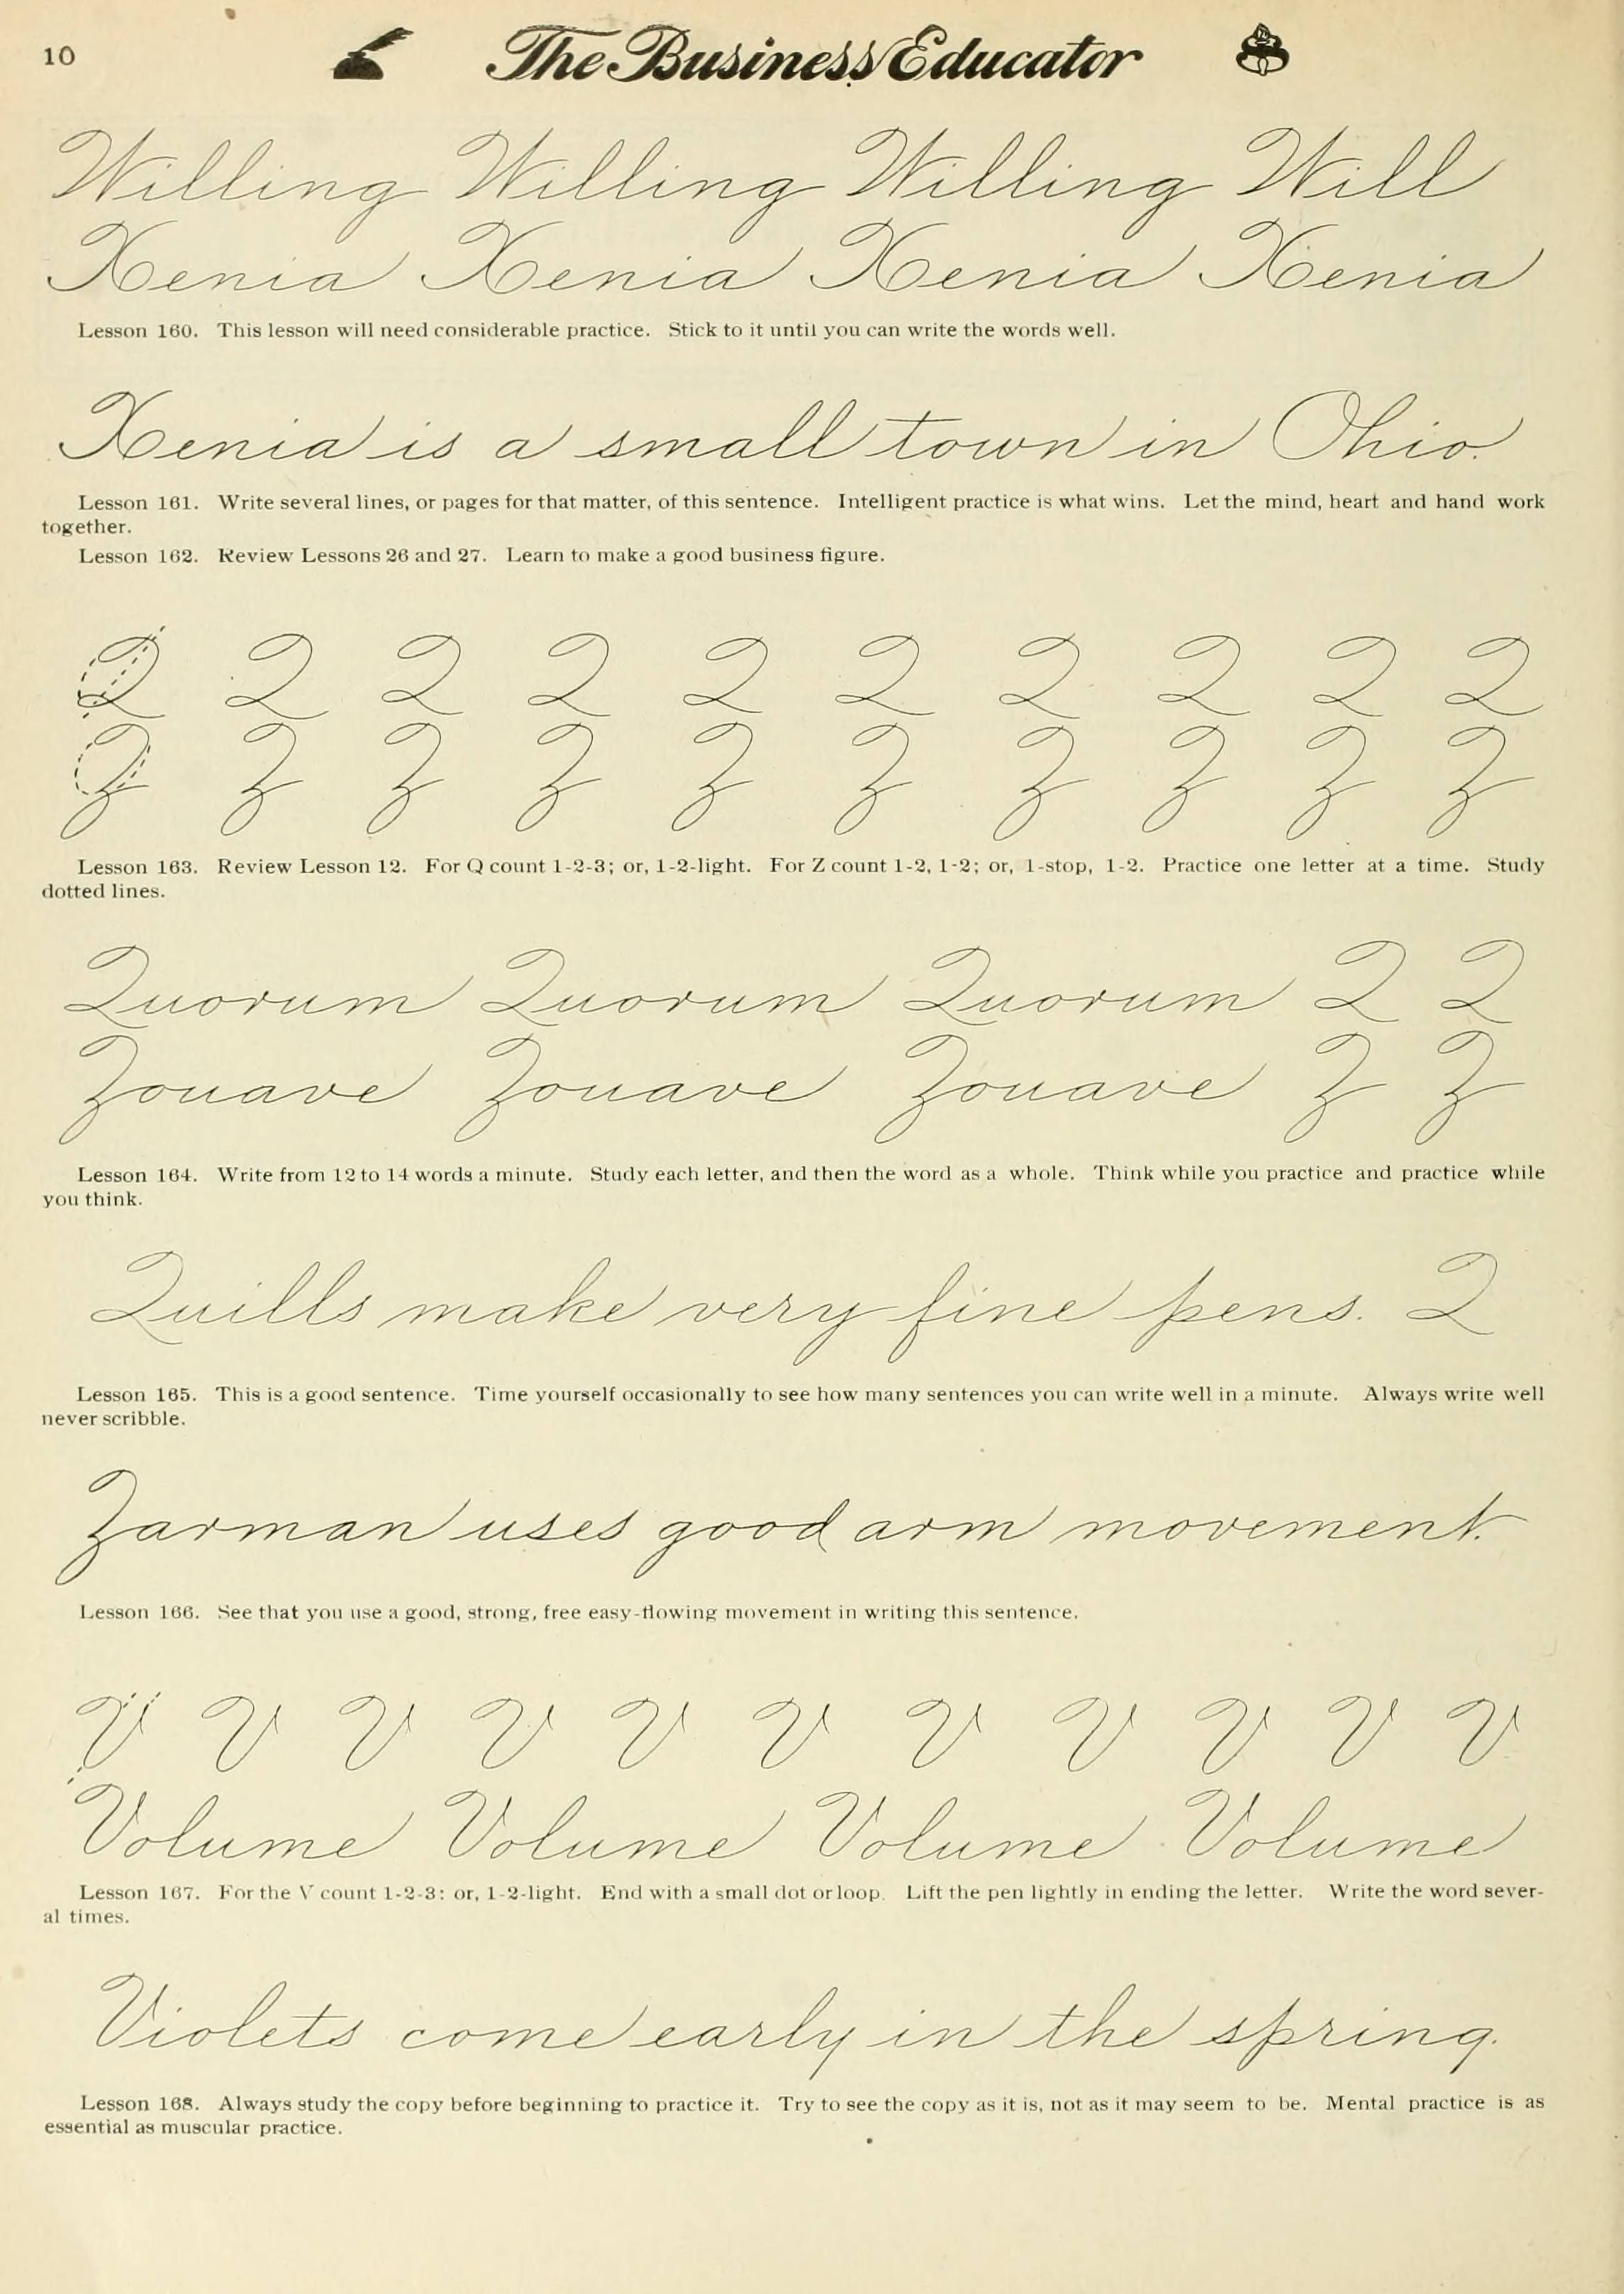 10
The Business Educator
Willing Willing Willing Will
Xenia Xenia Xenia Xenia
Lesson 160. This lesson will need considerable practice. Stick to it until you can write the words well.
Xenia is a small town in Ohio.
Lesson 161. Write several lines, or pages for that matter, of this sentence. Intelligent practice is what wins. Let the mind, heart and hand work
together.
Lesson 162. Review Lessons 26 and 27. Learn to make a good business figure.
Q Q Q Q Q Q Q Q Q Q
Z Z Z Z Z Z Z Z Z Z
Lesson 163. Review Lesson 12. For Q count 1-2-3; or, 1-2-light. For Z count 1-2, 1-2; or, 1-stop, 1-2. Practice one letter at a time. Study
dotted lines.
Quorum Quorum Quorum Q Q
Zouave Zouave Zouave Z Z
Lesson 164. Write from 12 to 14 words a minute. Study each letter, and then the word as a whole. Think while you practice and practice while
you think.
Quills make very fine pens. Q
Lesson 165. This is a good sentence. Time yourself occasionally to see how many sentences you can write well in a minute. Always write well
never scribble.
Zarman uses good arm movement.
Lesson 166. See that you use a good, strong, free easy-flowing movement in writing this sentence.
V V V V V V V V V V V
Volume Volume Volume Volume
Lesson 167. For the V count 1-2-3: or, 1-2-light. End with a small dot or loop. Lift the pen lightly in ending the letter. Write the word sever-
al times.
Violets come early in the spring.
Lesson 168. Always study the copy before beginning to practice it. Try to see the copy as it is, not as it may seem to be. Mental practice is as
essential as muscular practice.